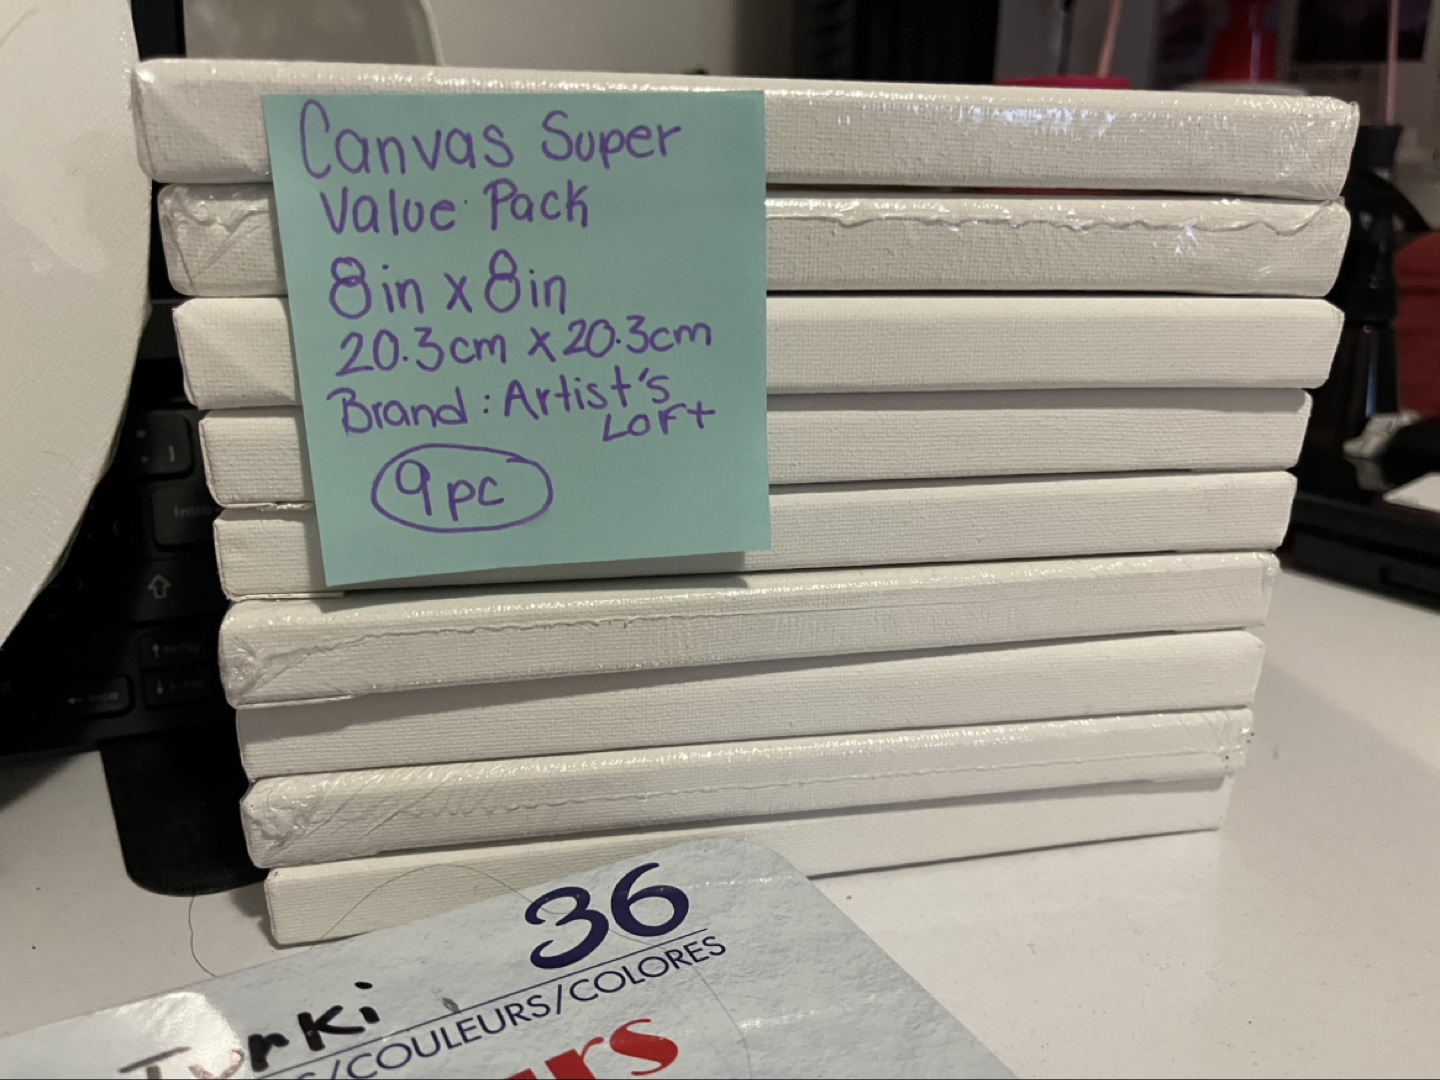 Canvas Super
Value Pack
8in x 8in
20.3cm x 20.3cm
Brand: Artist's
LOFT
9pc
36
/COULEURS/COLORES
Turki